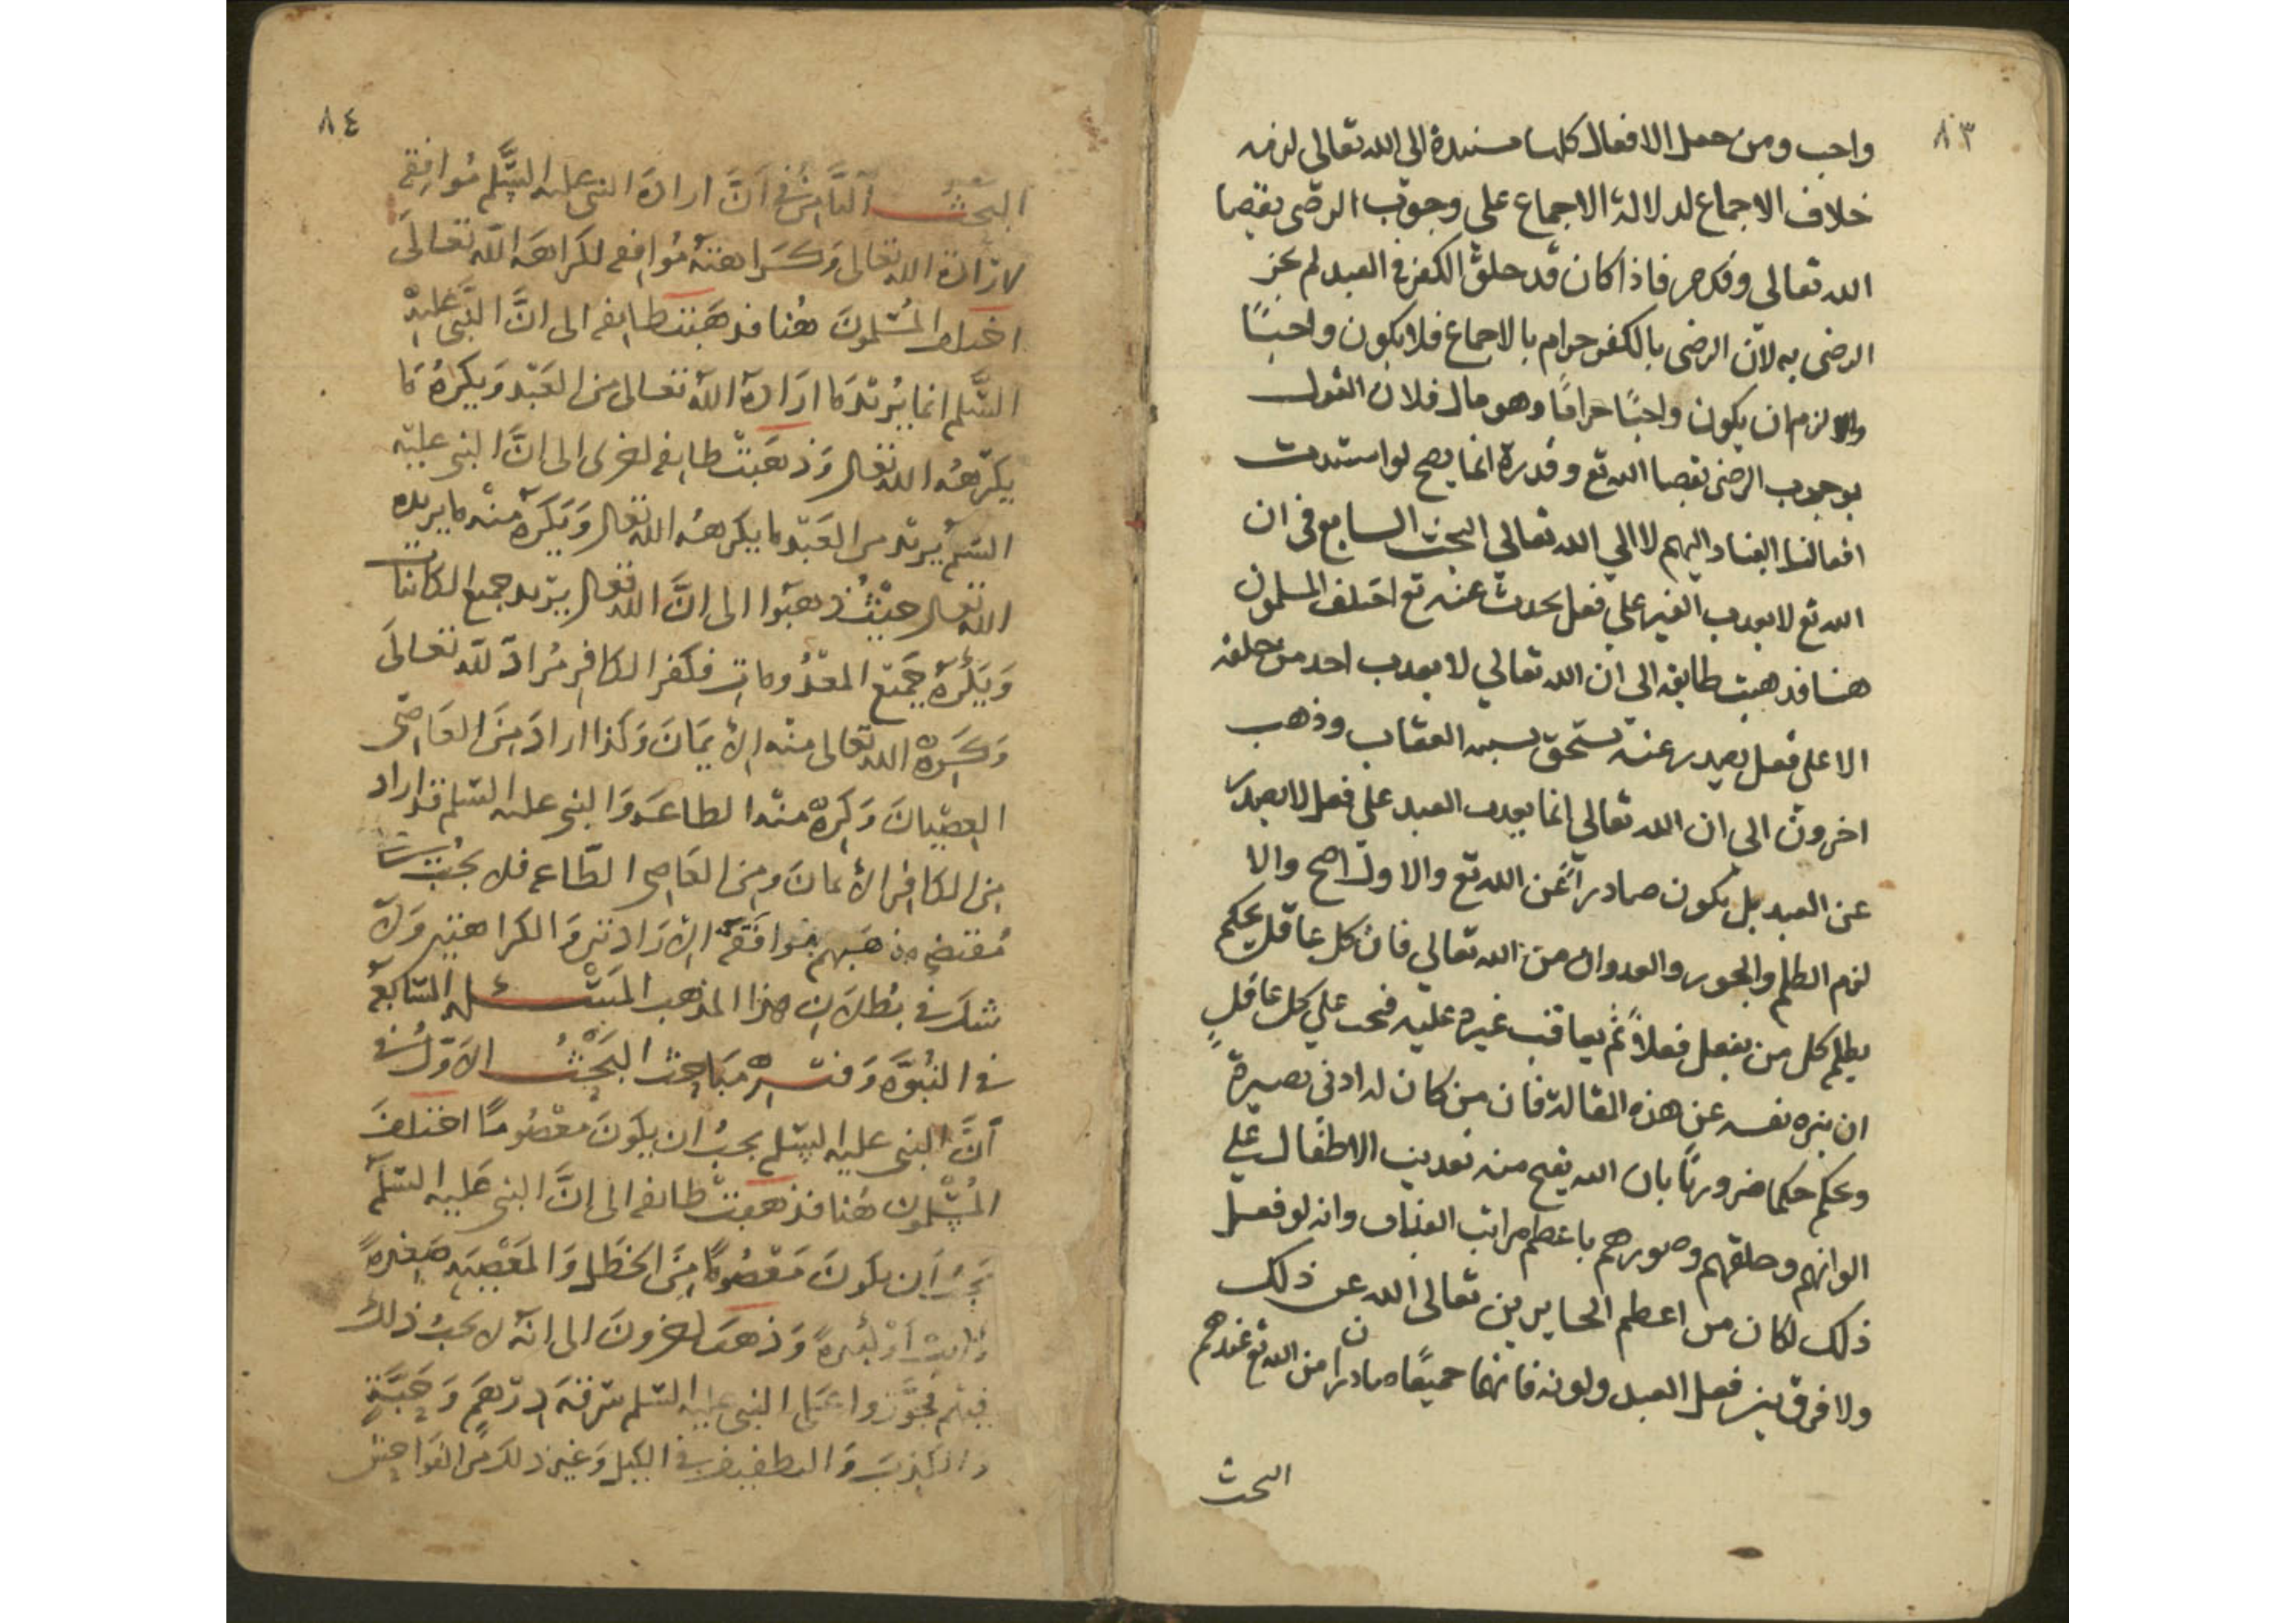 ٨٣
واجب ومن جعل الافعال كلها مسندة الي الله تعالي لزمه
خلاف الاجماع لدلالة الاجماع علي وجوب الرضى بقضا
الله تعالي وقدره فاذا كان قد خلق الكفر في العبد لم يجز
الرضى به لان الرضى بالكفر حرام بالاجماع فلا يكون واجبًا
والا لزم ان يكون واجبًا حرامًا وهو محال فلان القول
بوجوب الرضى بقضا الله تع وقدره انما يصح لو استندت
افعالنا اليهم لا الي الله تعالي البحث السابع في ان
الله تع لا يعذب الغير علي فعل يحدث عنه تع اختلف المسلمون
هنا فذهبت طايفه الى ان الله تعالي لا يعذب احد من خلقه
الا على فعل يصدر عنه يستحق بسببه العقاب وذهب
اخرون الي ان الله تعالي انما يعذب العبد علي فعل لا يصدر
عن العبد بل يكون صادرًا عن الله تع والاول اصح والا
لزم الظلم والجور والعدوان من الله تعالي فان كل عاقل يحكم
بظلم كل من يفعل فعلاً ثم يعاقب غيره عليه فيجب علي كل عاقلٍ
ان ينزه نفسه عن هذه المقالة فان من كان له ادنى بصيرة
وحكم حكما ضروريًا بان الله يقبح منه تعذيب الاطفال علي
الوانهم وخلقهم وصورهم باعظم مراتب العذاب وانه لو فعل
ذلك لكان من اعظم الجايرين تعالى الله عن ذلك
ولا فرق بين فعل العبد ولونه فانهما جميعًا صادران من الله تع عندهم
البحث
٨٤
البحث الثامن في ان ارادة النبي عليه السلم موافقه
لارادة الله تعالى وكراهته موافقه لكراهة الله تعالى
اختلف المسلمون هنا فذهبت طايفه الى ان النبي عليه
السلم انما يريد ما اراده الله تعالى من العبد ويكره ما
يكرهه الله تعالى وذهبت طايفه اخرى الى ان النبي عليه
السلم يريد من العبد ما يكرهه الله تعالى ويكره منه ما يريده
الله تعالى حيث ذهبوا الى ان الله تعالى يريد جميع الكائنات
ويكره جميع المعدومات فكفر الكافر مراد لله تعالى
وكره الله تعالى منه الايمان وكذا اراد من العاصى
العصيان وكره منه الطاعه والنبي عليه السلم قد اراد
من الكافر الايمان ومن العاصى الطاعه فلا يجب
مقتضى مذهبهم موافقة الارادتين والكراهتين ولا
شك في بطلان هذا المذهب المسئله السابعه
في النبوه وفيه مباحث البحث الاول في
ان النبي عليه السلم يجب ان يكون معصومًا اختلف
المسلمون هنا فذهبت طايفه الى ان النبي عليه السلم
يجب ان يكون معصومًا من الخطل والمعصيه صغيرة
كانت او كبيرة وذهب اخرون الى انه لا يجب ذلك
فيهم فجوزوا على النبي عليه السلم سرقة درهم وحبة
والكذب والتطفيف في الكيل وغير ذلك من الفواحش